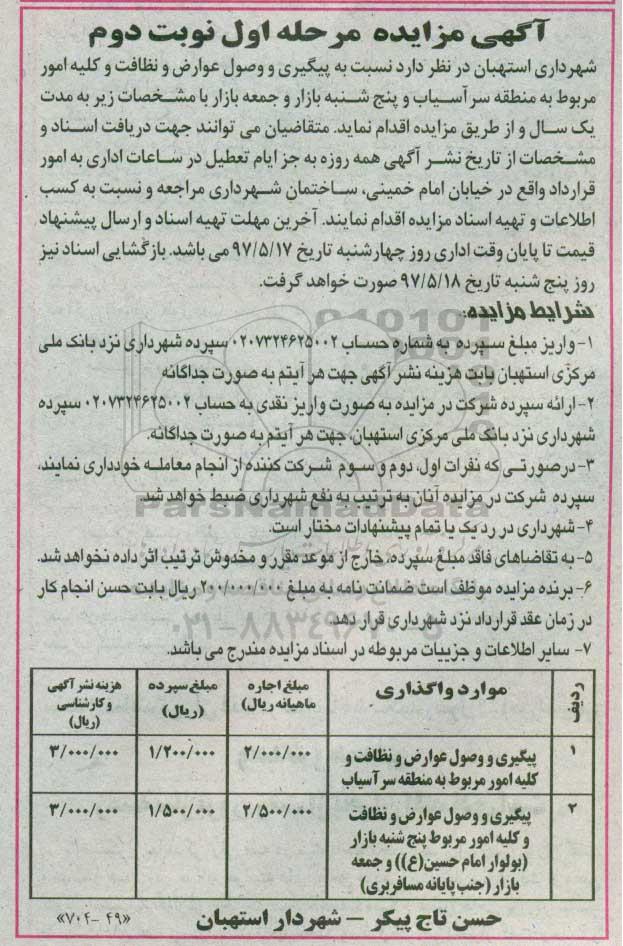 آگهی مزایده مرحله اول نوبت دوم
شهرداری استهبان در نظر دارد نسبت به پیگیری و وصول عوارض و نظافت و کلیه امور
مربوط به منطقه سر آسیاب و پنج شنبه بازار و جمعه بازار با مشخصات زیر به مدت
یک سال و از طریق مزایده اقدام نماید. متقاضیان می توانند جهت دریافت اسناد و
مشخصات از تاریخ نشر آگهی همه روزه به جز ایام تعطیل در ساعات اداری به امور
قرارداد واقع در خیابان امام خمینی، ساختمان شهرداری مراجعه و نسبت به کسب
اطلاعات و تهیه اسناد مزایده اقدام نمایند. آخرین مهلت تهیه اسناد و ارسال پیشنهاد
قیمت تا پایان وقت اداری روز چهارشنبه تاریخ ۹۷/۵/۱۷ می باشد. بازگشایی اسناد نیز
روز پنج شنبه تاریخ ۹۷/۵/۱۸ صورت خواهد گرفت.
شرایط مزایده:
۱-واریز مبلغ سپرده به شماره حساب ۰۲۰۷۳۲۴۶۲۵۰۰۲ سپرده شهرداری نزد بانک ملی
مرکزی استهبان بابت هزینه نشر آگهی جهت هر آیتم به صورت جداگانه
۲-ارائه سپرده شرکت در مزایده به صورت واریز نقدی به حساب ۰۲۰۷۳۲۴۶۲۵۰۰۲ سپرده
شهرداری نزد بانک ملی مرکزی استهبان، جهت هر آیتم به صورت جداگانه.
۳-درصورتی که نفرات اول، دوم و سوم شرکت کننده از انجام معامله خودداری نمایند،
سپرده شرکت در مزایده آنان به ترتیب به نفع شهرداری ضبط خواهد شد.
۴-شهرداری در رد یک یا تمام پیشنهادات مختار است.
۵- به تقاضاهای فاقد مبلغ سپرده، خارج از موعد مقرر و مخدوش ترتیب اثر داده نخواهد شد.
۶- برنده مزایده موظف است ضمانت نامه به مبلغ ۲۰۰/۰۰۰/۰۰۰ ریال بابت حسن انجام کار
در زمان عقد قرارداد نزد شهرداری قرار دهد.
۷- سایر اطلاعات و جزییات مربوطه در اسناد مزایده مندرج می باشد.
ردیف موارد واگذاری مبلغ اجاره ماهیانه ریال) مبلغ سپرده (ریال) هزینه نشر آگهی و کارشناسی (ریال)
۱ پیگیری و وصول عوارض و نظافت و ۲/۰۰۰/۰۰۰ ۱/۲۰۰/۰۰۰ ۳/۰۰۰/۰۰۰
کلیه امور مربوط به منطقه سر آسیاب
۲ پیگیری و وصول عوارض و نظافت ۲/۵۰۰/۰۰۰ ۱/۵۰۰/۰۰۰ ۳/۰۰۰/۰۰۰
و کلیه امور مربوط پنج شنبه بازار
(بولوار امام حسین(ع)) و جمعه
بازار (جنب پایانه مسافربری)
حسن تاج پیکر – شهردار استهبان
«۷۰۲-۴۹»
ParsNamadData